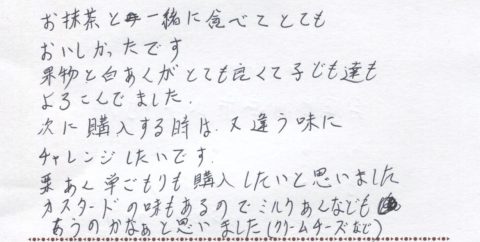 お抹茶と一緒に食べてとても
おいしかったです
果物と白あんがとても良くて子ども達も
よろこんでました.
次に購入する時は、又違う味に
チャレンジしたいです.
栗あん 単ごもりも購入したいと思いました
カスタードの味もあるのでミルクあんなども
あうのかなぁと思いました(クリームチーズなど)